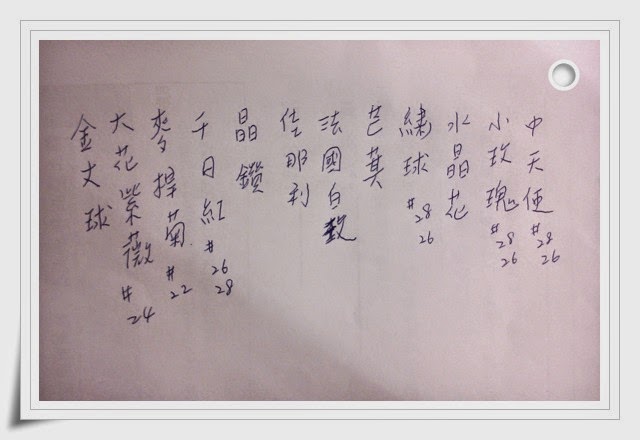 中天使 #28 26
小玫瑰 #28 26
水晶花
繡球 #28 26
芒萁
法國白
佳那利
晶鑽
千日紅 #26 28
麥桿菊 #22
大花紫薇 #24
金丈球